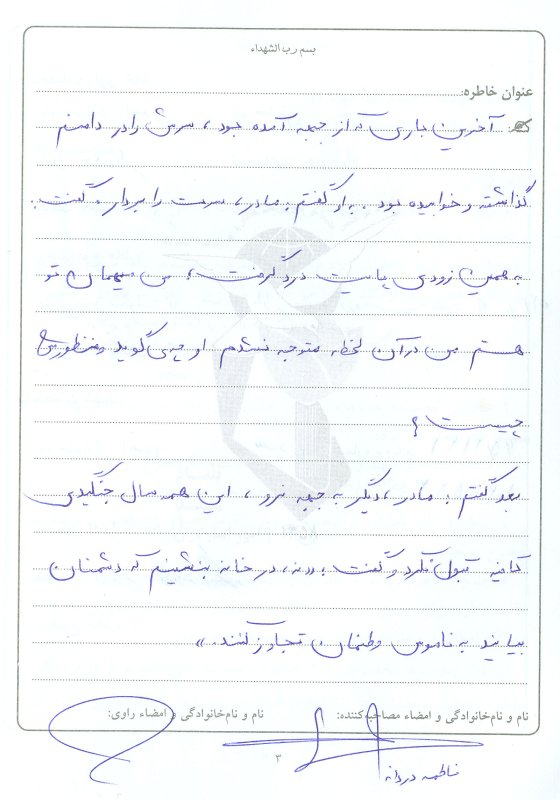 بسم رب الشهداء
عنوان خاطره:
آخرین باری که از جبهه آمده بود، سرش را در دامنم
گذاشته و خوابیده بود. به او گفتم: مادر، سرت را بردار. گفت:
به همین زودی پایت درد گرفت؟ من میهمان تو
هستم من در آن لحظه متوجه نشدم او چه می‌گوید و منظورش
چیست؟
بعد گفتم: مادر، دیگر به جبهه نرو، این همه سال جنگیدی
کافیه قبول نکرد و گفت: نه، در خانه بنشینم که دشمنان
بیایند به ناموس وطنمان تجاوز کنند.»
نام و نام‌خانوادگی و امضاء مصاحبه‌کننده:
نام و نام‌خانوادگی و امضاء راوی:
فاطمه دردانه
۳